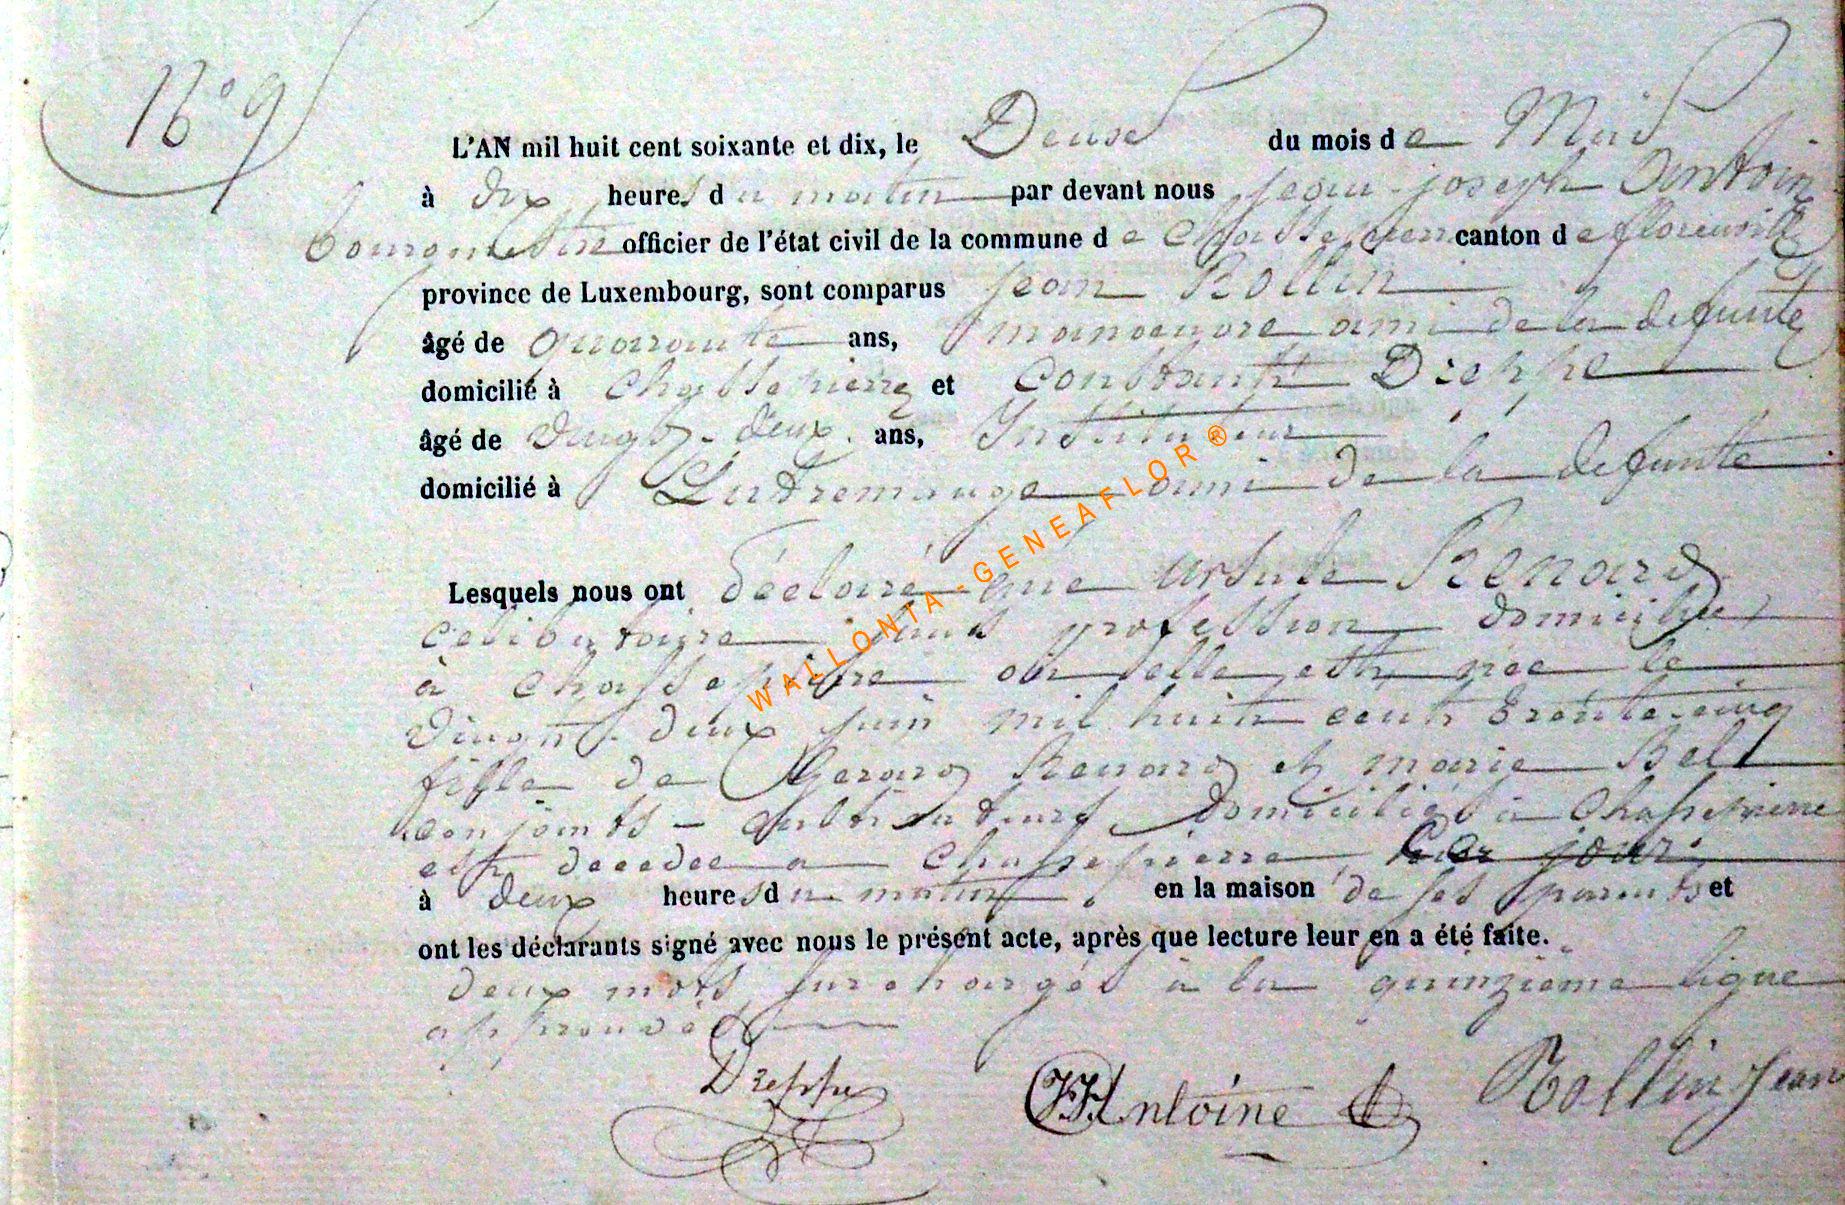 N° 9
L'AN mil huit cent soixante et dix, le Deuse du mois de Mai
à dix heures du matin par devant nous jean-joseph Antoine
bourgmestre officier de l'état civil de la commune de Chassepierre canton de florenville
province de Luxembourg, sont comparus jean Rollin
âgé de quarante ans, manoeuvre ami de la defunte
domicilié à Chassepierre et Constant Dreppe
âgé de vingt-deux ans, Instituteur
domicilié à Lutremange ami de la defunte
Lesquels nous ont déclaré que ursule Renard
celibataire sans profession domiciliée
à chassepierre où elle est née le
vingt-deux juin mil huit cent trente-cinq
fille de Gerard Renard et marie Bell
conjoints cultivateurs domiciliés à Chassepierre
est decedee a chassepierre, ce jour
à deux heures du matin, en la maison de ses parents et
ont les déclarants signé avec nous le présent acte, après que lecture leur en a été faite.
deux mots surchargés à la quinzième ligne
approuvés
Dreppe JJAntoine Rollin Jean
WALLONIA-GENEAFLOR®